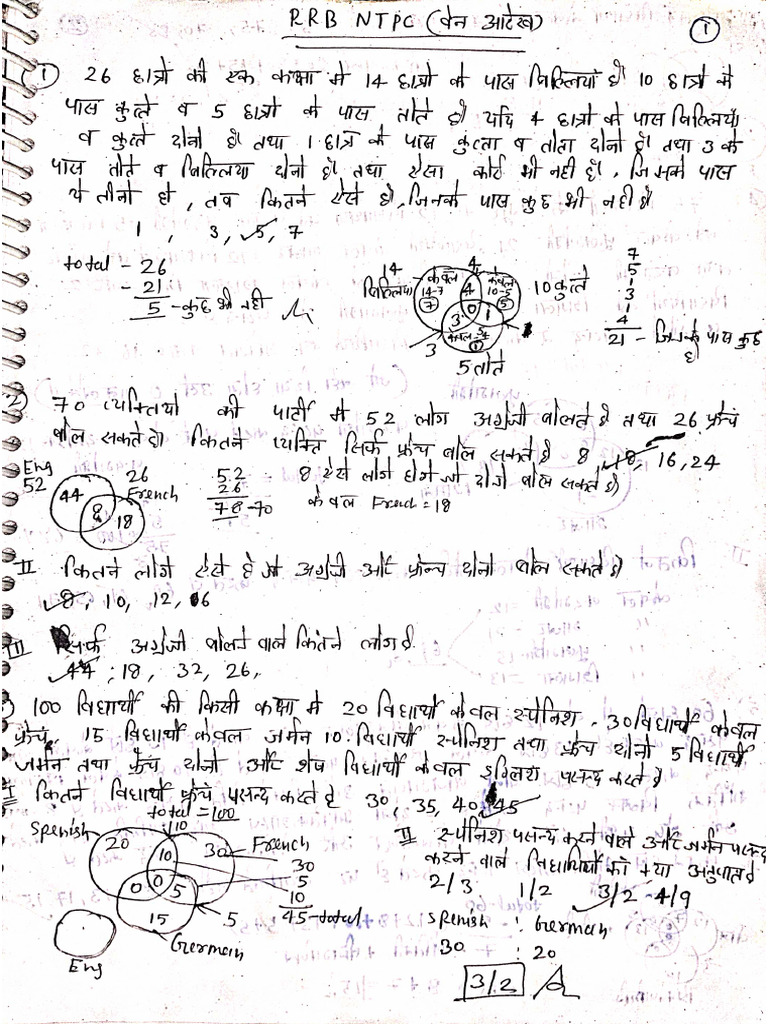 RRB NTPC (वेन आरेख)
1
(1) 26 छात्रो की एक कक्षा मे 14 छात्रो के पास बिल्लियां है। 10 छात्रो के
पास कुत्ते व 5 छात्रो के पास तोते है। यदि 4 छात्रो के पास बिल्लियों
व कुत्ते दोनो है। तथा 1 छात्र के पास कुत्ता व तोता दोनो है। तथा 3 के
पास तोते व बिल्लिया दोनो है। तथा ऐसा कोई भी नही है। जिसके पास
ये तीनो हो, तब कितने ऐसे है, जिनके पास कुछ भी नही है
1, 3, 5, 7
total - 26
- 21
5 - कुछ भी नही
14
बिल्लिया
4
केवल
14-7
7
4
केवल
10-5
5
0
1
3
3
1
10 कुत्ते
5 तोते
7
5
1
3
1
4
21 - जिनके पास कुछ
है
2) 70 व्यक्तियो की पार्टी मे 52 लोग अंग्रेजी बोलते है तथा 26 फ्रेंच
बोल सकते है। कितने व्यक्ति सिर्फ फ्रेंच बोल सकते है 8, 18, 16, 24
Eng
52
44
8
18
26
French
52
26
78-70
8 ऐसे लोग होगे जो दोनो बोल सकते है।
केवल French = 18
II कितने लोग ऐसे है जो अंग्रेजी और फ्रेन्च दोनो बोल सकते है
8, 10, 12, 16
III सिर्फ अंग्रेजी बोलने वाले कितने लोग है
44, 18, 32, 26,
100 विद्यार्थी की किसी कक्षा मे 20 विद्यार्थी केवल स्पेनिश, 30 विद्यार्थी केवल
फ्रेंच, 15 विद्यार्थी केवल जर्मन 10 विद्यार्थी स्पेनिश तथा फ्रेंच दोनो 5 विद्यार्थी
जर्मन तथा फ्रेंच दोनो और शेष विद्यार्थी केवल इंग्लिश पसन्द करते है
I कितने विद्यार्थी फ्रेंच पसन्द करते है 30, 35, 40, 45
total = 100
Spenish
20
10
10
30
French
0
0
5
15
5
Germain
Eng
30
5
10
45 - total
II स्पेनिश पसन्द करने वाले और जर्मन पसन्द
करने वाले विद्यार्थियो का क्या अनुपात है
2/3 1/2 3/2 4/9
Spenish : Germain
30 : 20
3/2